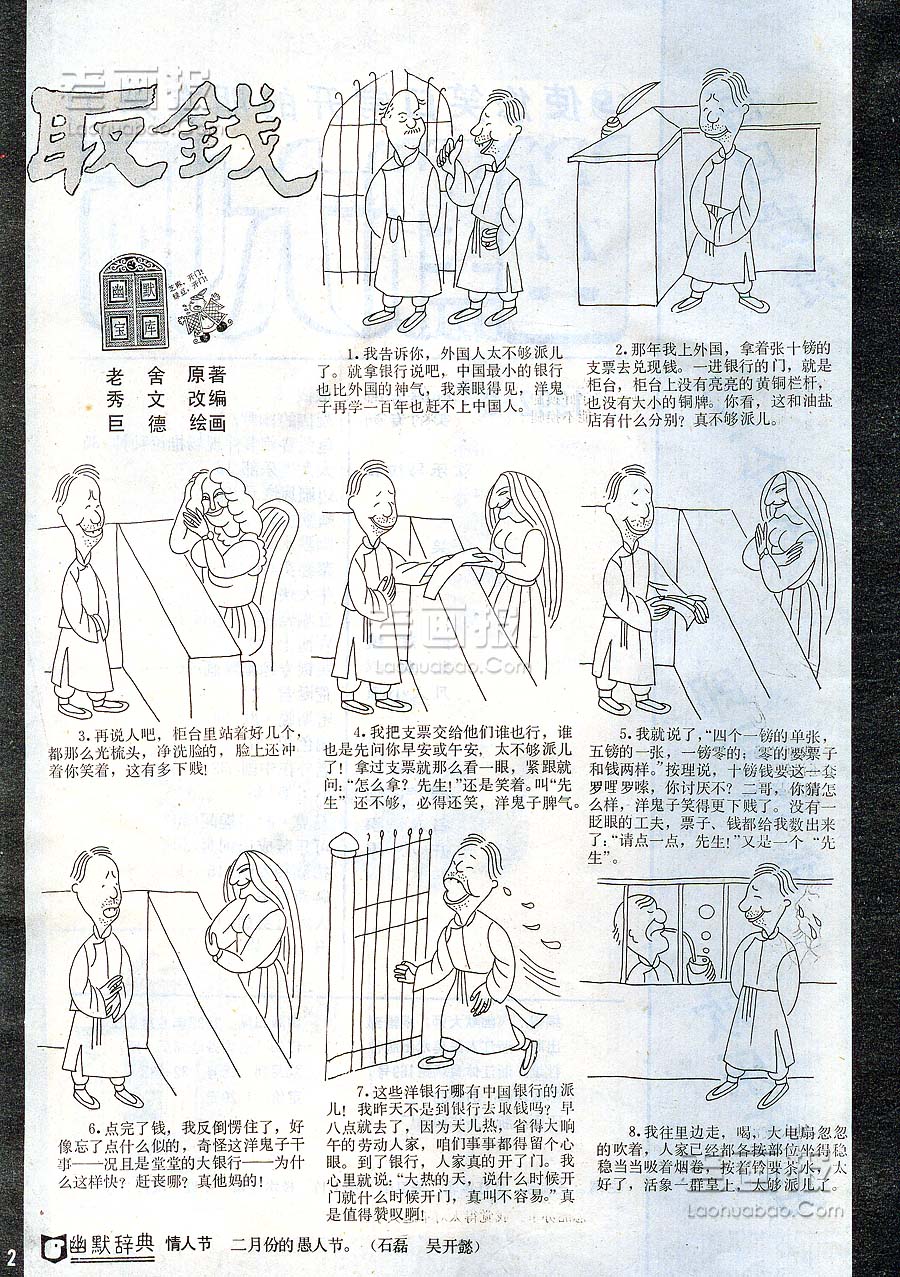 取錢
老画报
Laohuabao.Com
幽默
宝库
芝麻，开门！
绿豆，开门！
老舍 原著
秀文 改编
巨德 绘画
1.我告诉你，外国人太不够派儿
了。就拿银行说吧，中国最小的银行
也比外国的神气，我亲眼得见，洋鬼
子再学一百年也赶不上中国人。
2.那年我上外国，拿着张十镑的
支票去兑现钱。一进银行的门，就是
柜台，柜台上没有亮亮的黄铜栏杆，
也没有大小的铜牌。你看，这和油盐
店有什么分别？真不够派儿。
3.再说人吧，柜台里站着好几个，
都那么光梳头，净洗脸的，脸上还冲
着你笑着，这有多下贱！
4.我把支票交给他们谁也行，谁
也是先问你早安或午安，太不够派儿
了！拿过支票就那么看一眼，紧跟就
问：“怎么拿？先生！”还是笑着。叫“先
生”还不够，必得还笑，洋鬼子脾气。
5.我就说了，“四个一镑的单张，
五镑的一张，一镑零的；零的要票子
和钱两样。”按理说，十镑钱要这一套
罗哩罗嗦，你讨厌不？二哥，你猜怎
么样，洋鬼子笑得更下贱了。没有一
眨眼的工夫，票子、钱都给我数出来
了；“请点一点，先生！”又是一个“先
生”。
老画报
Laohuabao.Com
6.点完了钱，我反倒愣住了，好
像忘了点什么似的，奇怪这洋鬼子干
事——况且是堂堂的大银行——为什
么这样快？赶丧哪？真他妈的！
7.这些洋银行哪有中国银行的派
儿！我昨天不是到银行去取钱吗？早
八点就去了，因为天儿热，省得大晌
午的劳动人家，咱们事事都得留个心
眼。到了银行，人家真的开了门。我
心里就说：“大热的天，说什么时候开
门就什么时候开门，真叫不容易。”真
是值得赞叹啊！
8.我往里边走，喝，大电扇忽忽
的吹着，人家已经都各按部位坐得稳
稳当当吸着烟卷，按着铃要茶水，太
好了，活象一群皇上，太够派儿了。
老画报
Laohuabao.Com
幽默辞典 情人节 二月份的愚人节。（石磊 吴开懿）
2